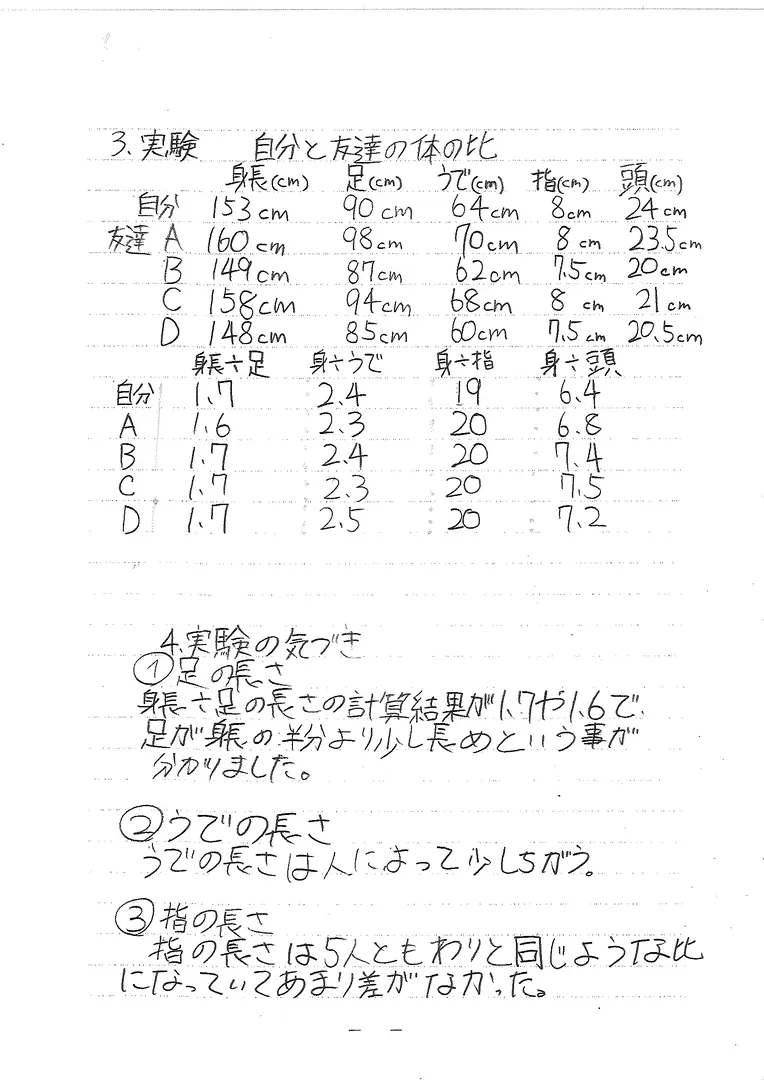 3、実験 自分と友達の体の比
身長(cm) 足(cm) うで(cm) 指(cm) 頭(cm)
自分 153cm 90cm 64cm 8cm 24cm
友達 A 160cm 98cm 70cm 8cm 23.5cm
B 149cm 87cm 62cm 7.5cm 20cm
C 158cm 94cm 68cm 8cm 21cm
D 148cm 85cm 60cm 7.5cm 20.5cm
身長÷足 身÷うで 身÷指 身÷頭
自分 1.7 2.4 19 6.4
A 1.6 2.3 20 6.8
B 1.7 2.4 20 7.4
C 1.7 2.3 20 7.5
D 1.7 2.5 20 7.2
4、実験の気づき
①足の長さ
身長÷足の長さの計算結果が1.7や1.6で
足が身長の半分より少し長めという事が
分かりました。
②うでの長さ
うでの長さは人によって少しちがう。
③指の長さ
指の長さは5人ともわりと同じような比
になっていてあまり差がなかった。